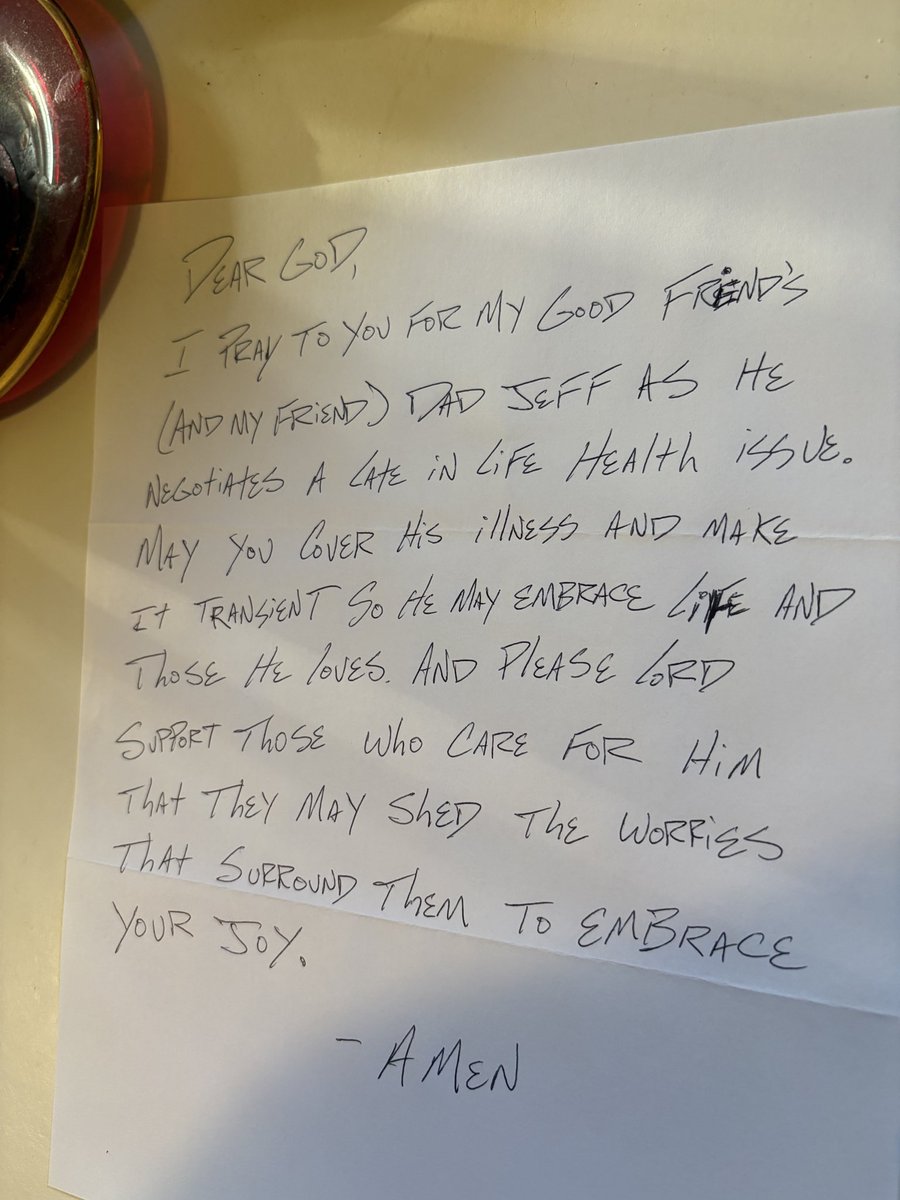 DEAR GOD,
I PRAY TO YOU FOR MY GOOD FRIEND'S
(AND MY FRIEND) DAD JEFF AS HE
NEGOTIATES A LATE IN LIFE HEALTH ISSUE.
MAY YOU COVER HIS ILLNESS AND MAKE
IT TRANSIENT SO HE MAY EMBRACE LIFE AND
THOSE HE LOVES. AND PLEASE LORD
SUPPORT THOSE WHO CARE FOR HIM
THAT THEY MAY SHED THE WORRIES
THAT SURROUND THEM TO EMBRACE
YOUR JOY.
- AMEN